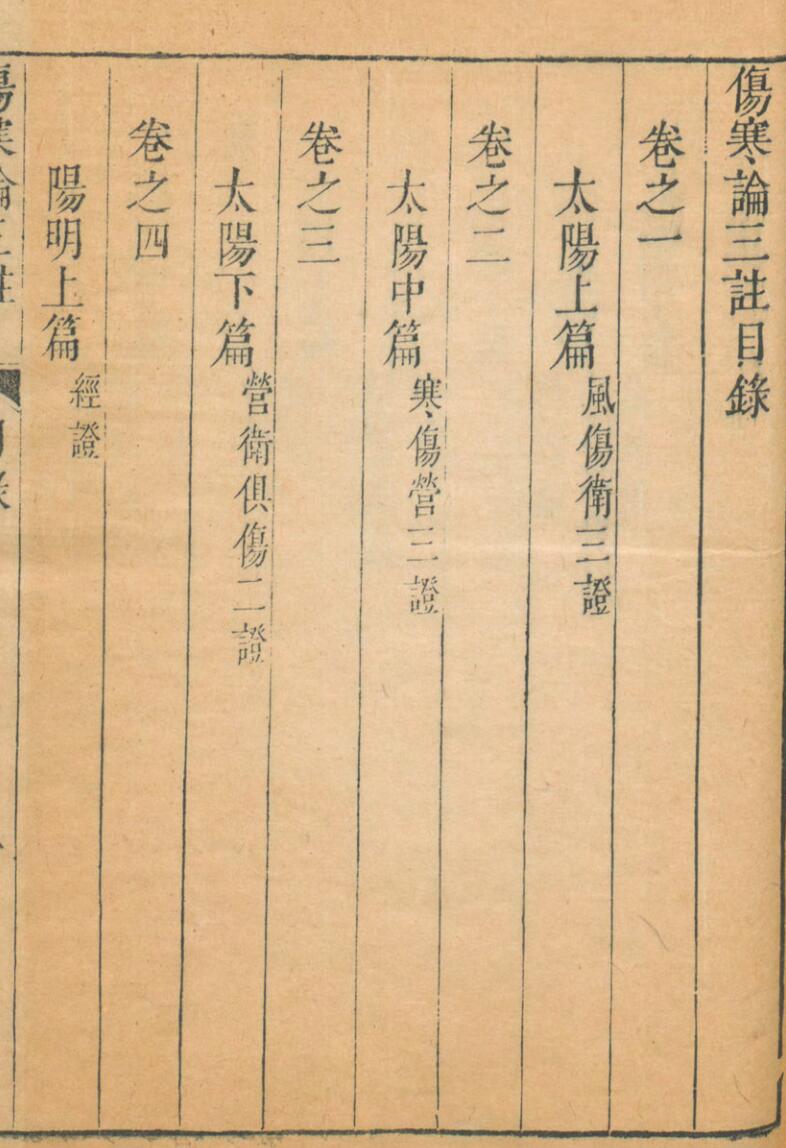 傷寒論三註目錄
卷之一
太陽上篇風傷衛三證
卷之二
太陽中篇寒傷營三證
卷之三
太陽下篇營衛俱傷二證
卷之四
陽明上篇經證
傷寒論三註
目錄